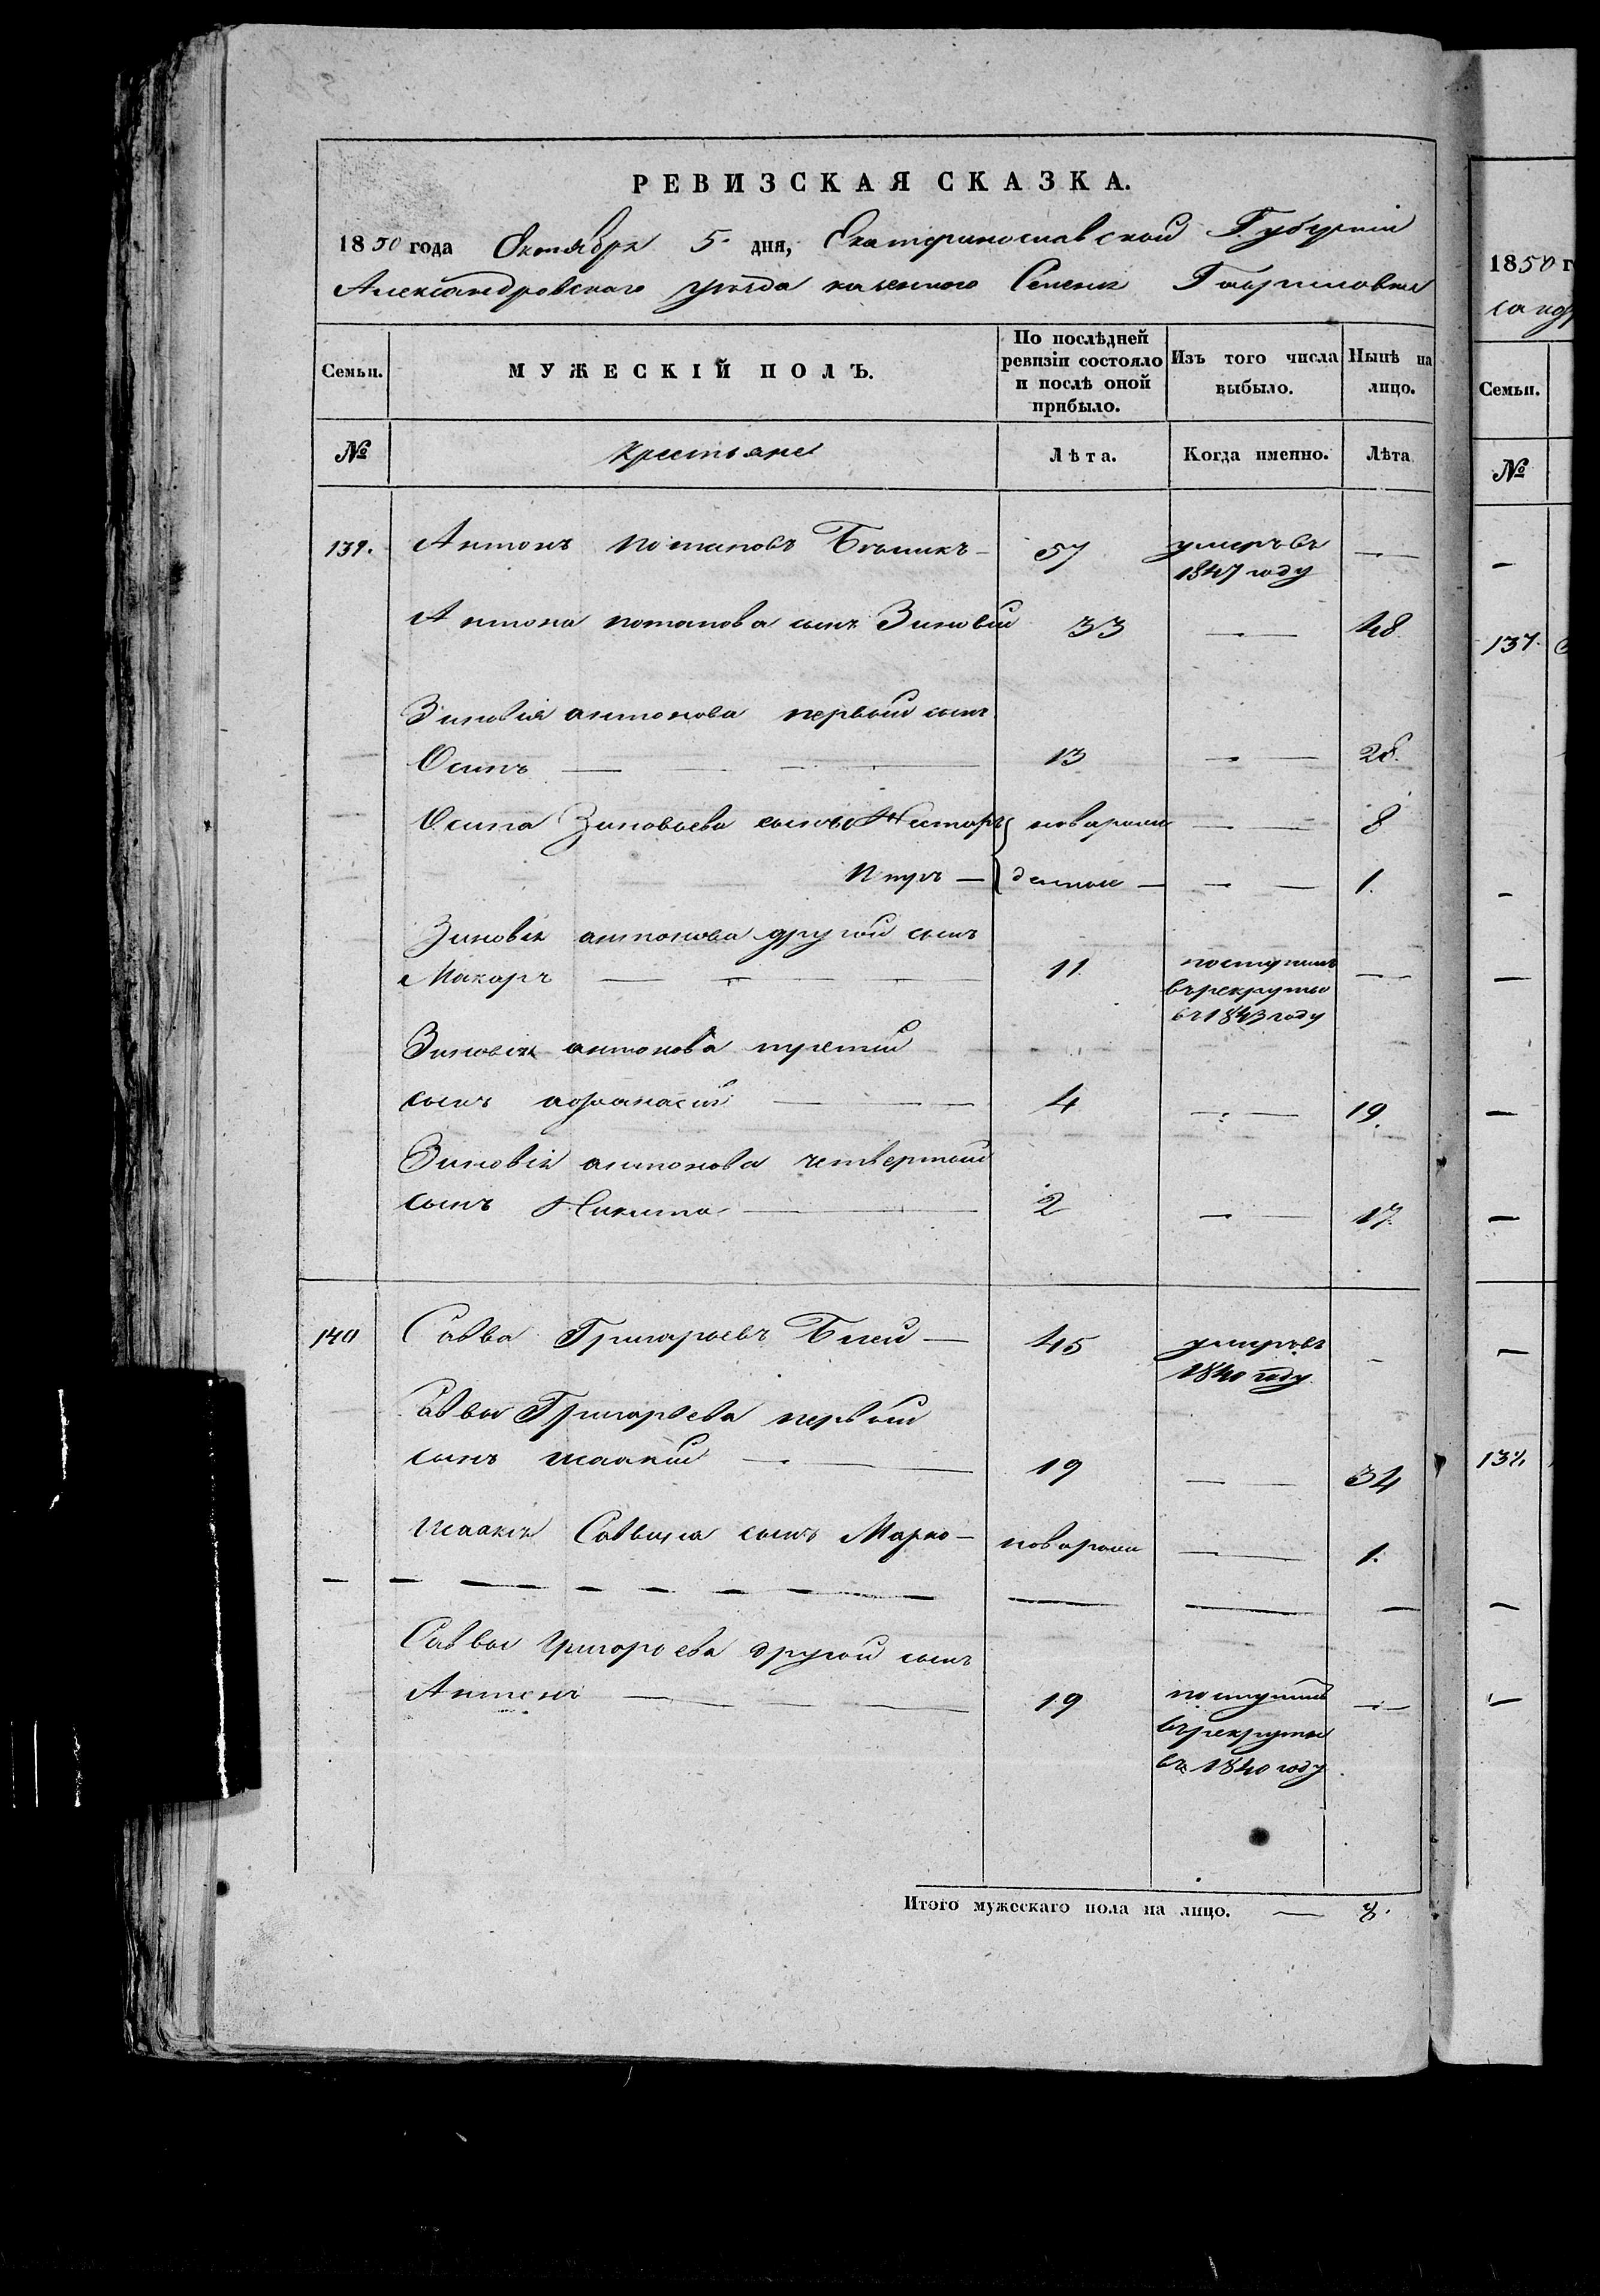 РЕВИЗСКАЯ СКАЗКА.
1850 года Октября 5 дня, Екатеринославской Губернiи
Александровскаго уѣзда казенного Селенiя Гавриловки
Семьи. МУЖЕСКIЙ ПОЛЪ. По послѣдней ревизiи состояло и послѣ оной прибыло. Изъ того числа выбыло. Нынѣ на лицо.
№ Крестьяне Лѣта. Когда именно. Лѣта
139. Антонъ Потаповъ — 57 умеръ въ —
1847 году
Антона потапова сынъ Зиновiй 33 — 48
Зиновiя антонова первый сынъ
Осипъ — 13 — 28.
Осипа Зиновьева сыновья Несторъ новорож — 8
Петръ — денные — — 1.
Зиновiя антонова другой сынъ
Макаръ — 11 поступилъ —
въ рекруты
въ 1843 году
Зиновiя антонова третiй
сынъ афанасiй — 4 — 19.
Зиновiя антонова четвертый
сынъ Никита — 2 — 17.
140 Савва Григорьевъ — 45 умеръ въ —
1840 году
Саввы Григорьева первый
сынъ исаакiй — 19 — 34
исаакiя Саввина сынъ Марко — новорож — 1.
Саввы Григорьева другой сынъ
Антонъ — 19 поступилъ —
въ рекруты
въ 1840 году
Итого мужескаго пола на лицо. —
1850 г
Семьи.
№
137.